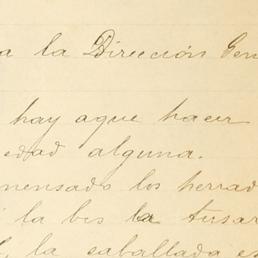 a la Dirección Gen
hay aque hacer
edad alguna.
mensado los herrad
la bis la tusar
la caballada es